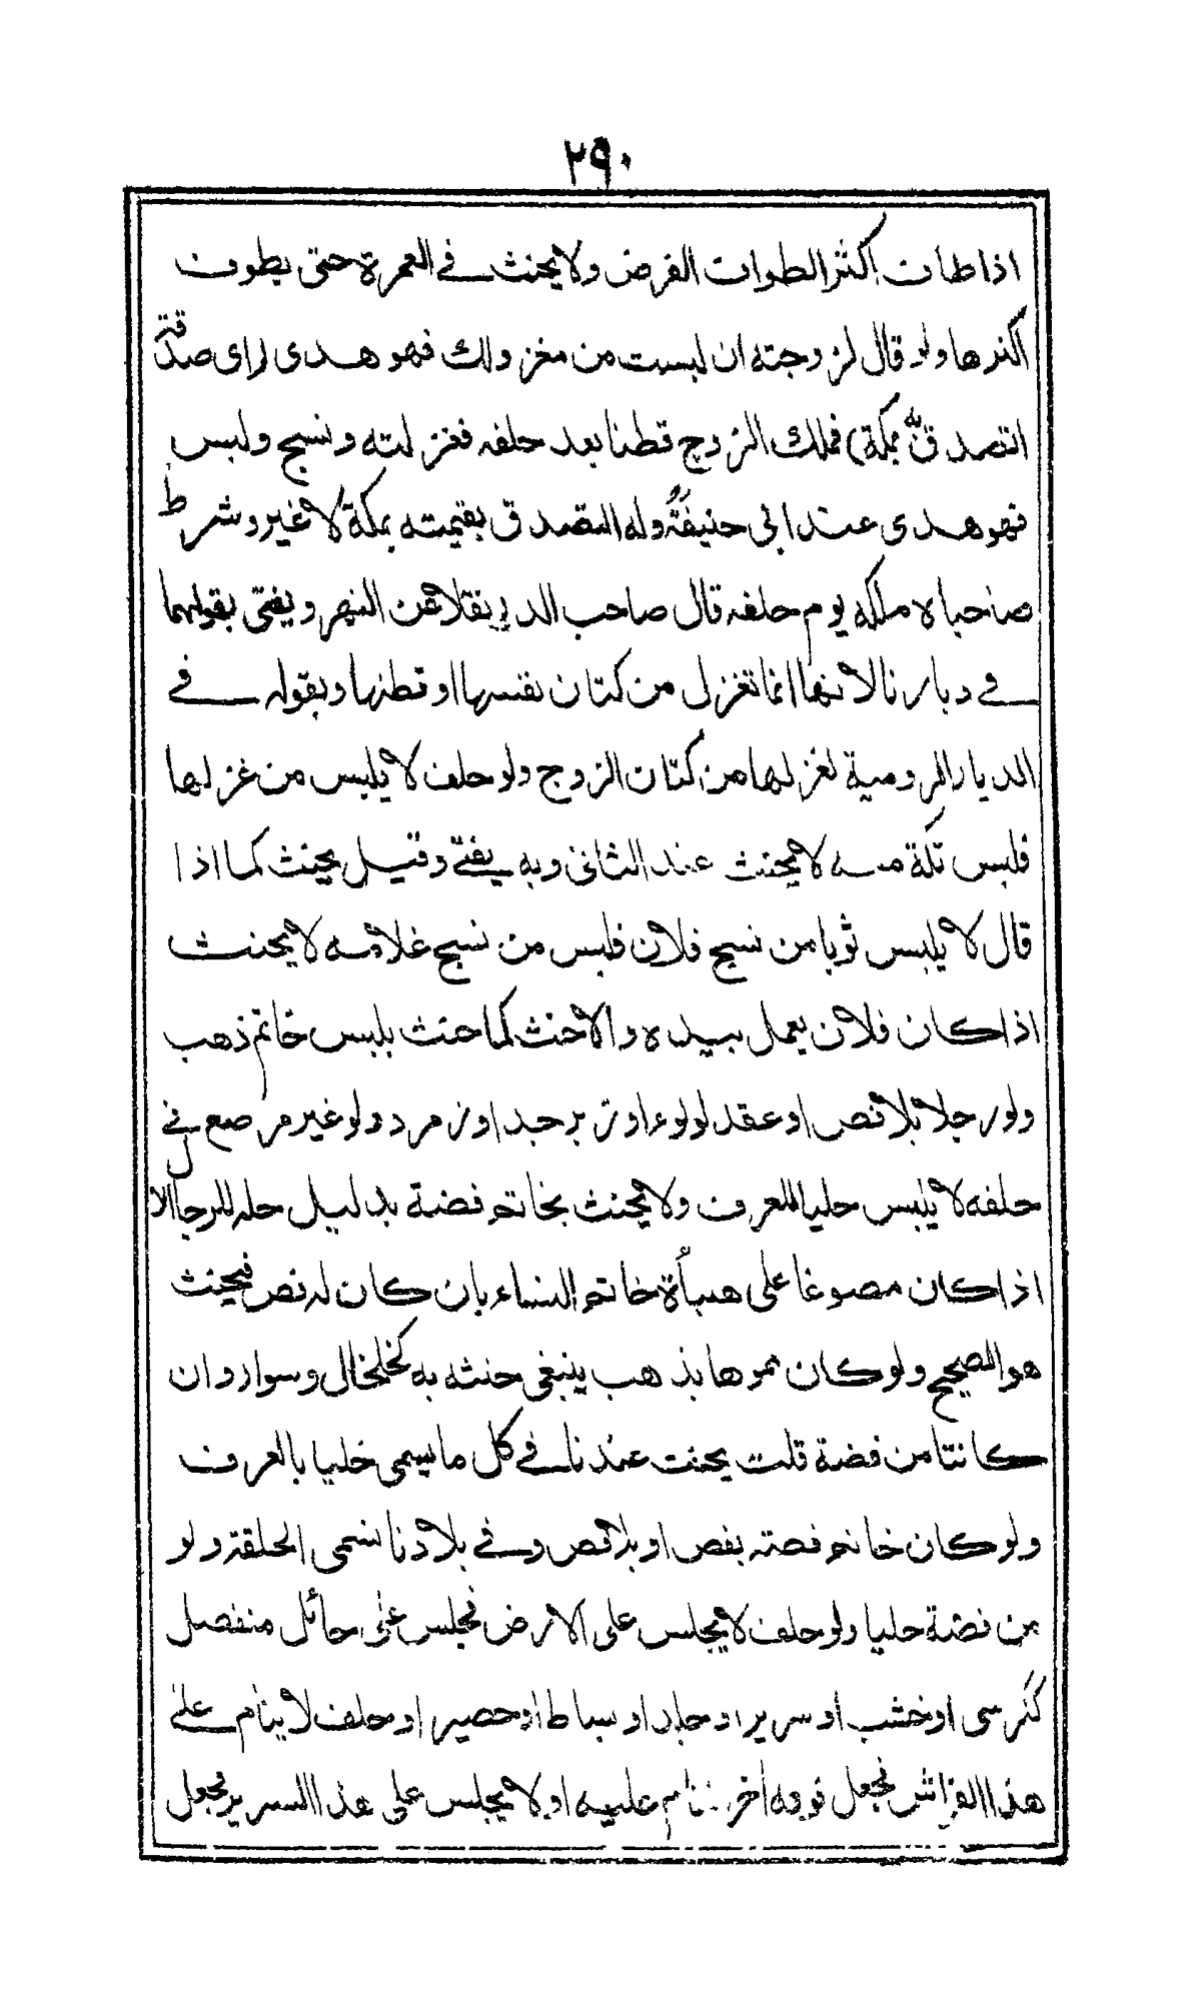 ٢٩٠
اذا طاف اكثر الطواف الفرض ولا يحنث في العمرة حتى يطوف
اكثرها ولو قال لزوجته ان لبست من مغزولك فهو هدى (اى صدقة
اتصدق بمكة) فملك الزوج قطنا بعد حلفه فغزلته ونسج ولبس
فهو هدى عند ابي حنيفة وله التصدق بقيمته بمكة لا غير وشرط
صاحباه ملكه يوم حلفه قال صاحب الدر نقلا عن النهر ويفتى بقولهما
في ديارنا لانها انما تغزل من كتان نفسها او قطنها وبقوله في
الديار الرومية لغزلها من كتان الزوج ولو حلف لا يلبس من غزلها
فلبس تكة منه لا يحنث عند الثاني وبه يفتى وقيل يحنث كما اذا
قال لا يلبس ثوبا من نسج فلان فلبس من نسج غلامه لا يحنث
اذا كان فلان يعمل بيده والا حنث كما حنث بلبس خاتم ذهب
ولو رجلا بلا فص او عقد لولوء او زبرجد او زمرد ولو غير مرصع في
حلفه لا يلبس حليا للعرف ولا يحنث بخاتم فضة بدليل حله للرجال الا
اذا كان مصوغا على هيأة خاتم النساء بان كان له فص فيحنث
هو الصحيح ولو كان مموها بذهب ينبغي حنثه به كخلخال وسوار وان
كانتا من فضة قلت يحنث عندنا في كل ما يسمى حليا بالعرف
ولو كان خاتم فضة بفص او بلا فص وفي بلادنا تسمى الحلقة ولو
من فضة حليا ولو حلف لا يجلس على الارض فجلس على حائل منفصل
كرسى او خشب او سرير او جلد او بساط او حصير او حلف لا ينام على
هذا الفراش فجعل فوقه آخر فنام عليه او لا يجلس على هذا السرير فجعل